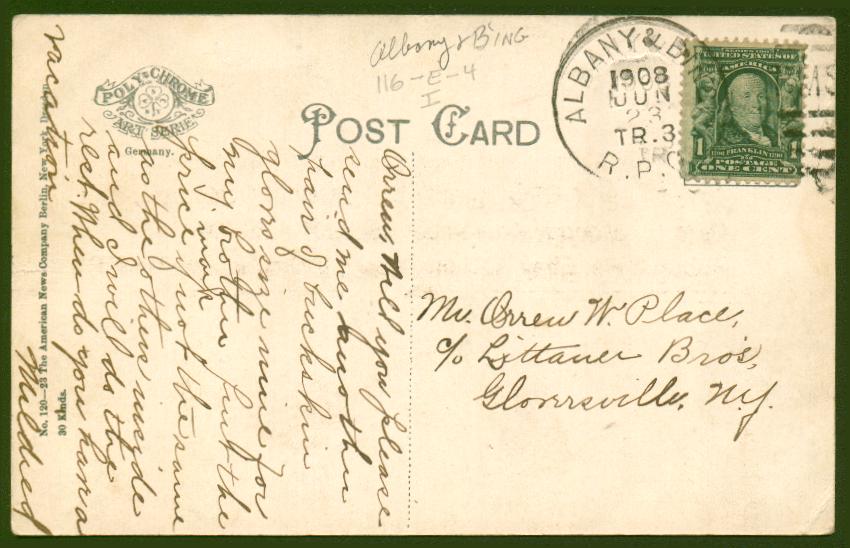 Albany & BING
116-E-4
I
POLY-CHROME
ART SERIE
Germany.
POST CARD
ALBANY & BI
1908
JUN
23
TR. 3
R.P.O
SERIES 1902
UNITED STATES OF
AMERICA
1 FRANKLIN 1
POSTAGE
ONE CENT
Orrew, Will you please
send me another
pair of buckskin
gloves size nine for
my brother. Put the
price if not the same
I mark
as the others inside
and I will do the
rest. When do you have a
vacation
Mildred
No. 120—23 The American News Company Berlin, New-York,
30 Kinds.
Mr. Orrew W. Place,
c/o Littauer Bro's,
Gloversville, N.Y.